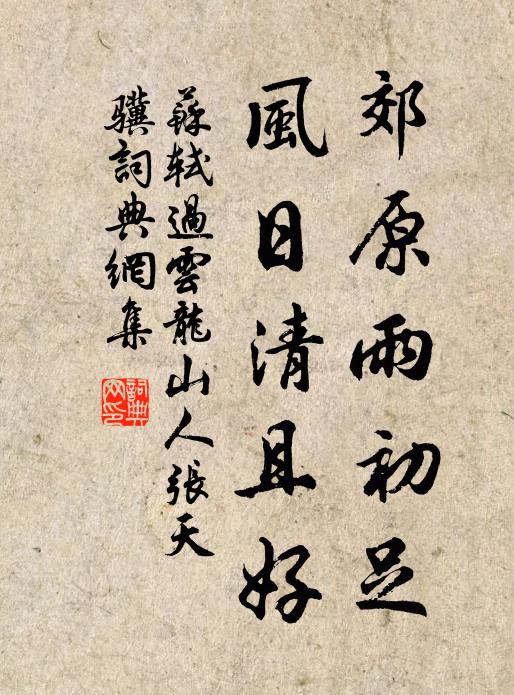 郊原雨初足
風日清且好
蘇軾過雲龍山人張天
驥詞典網集
詞典
网印